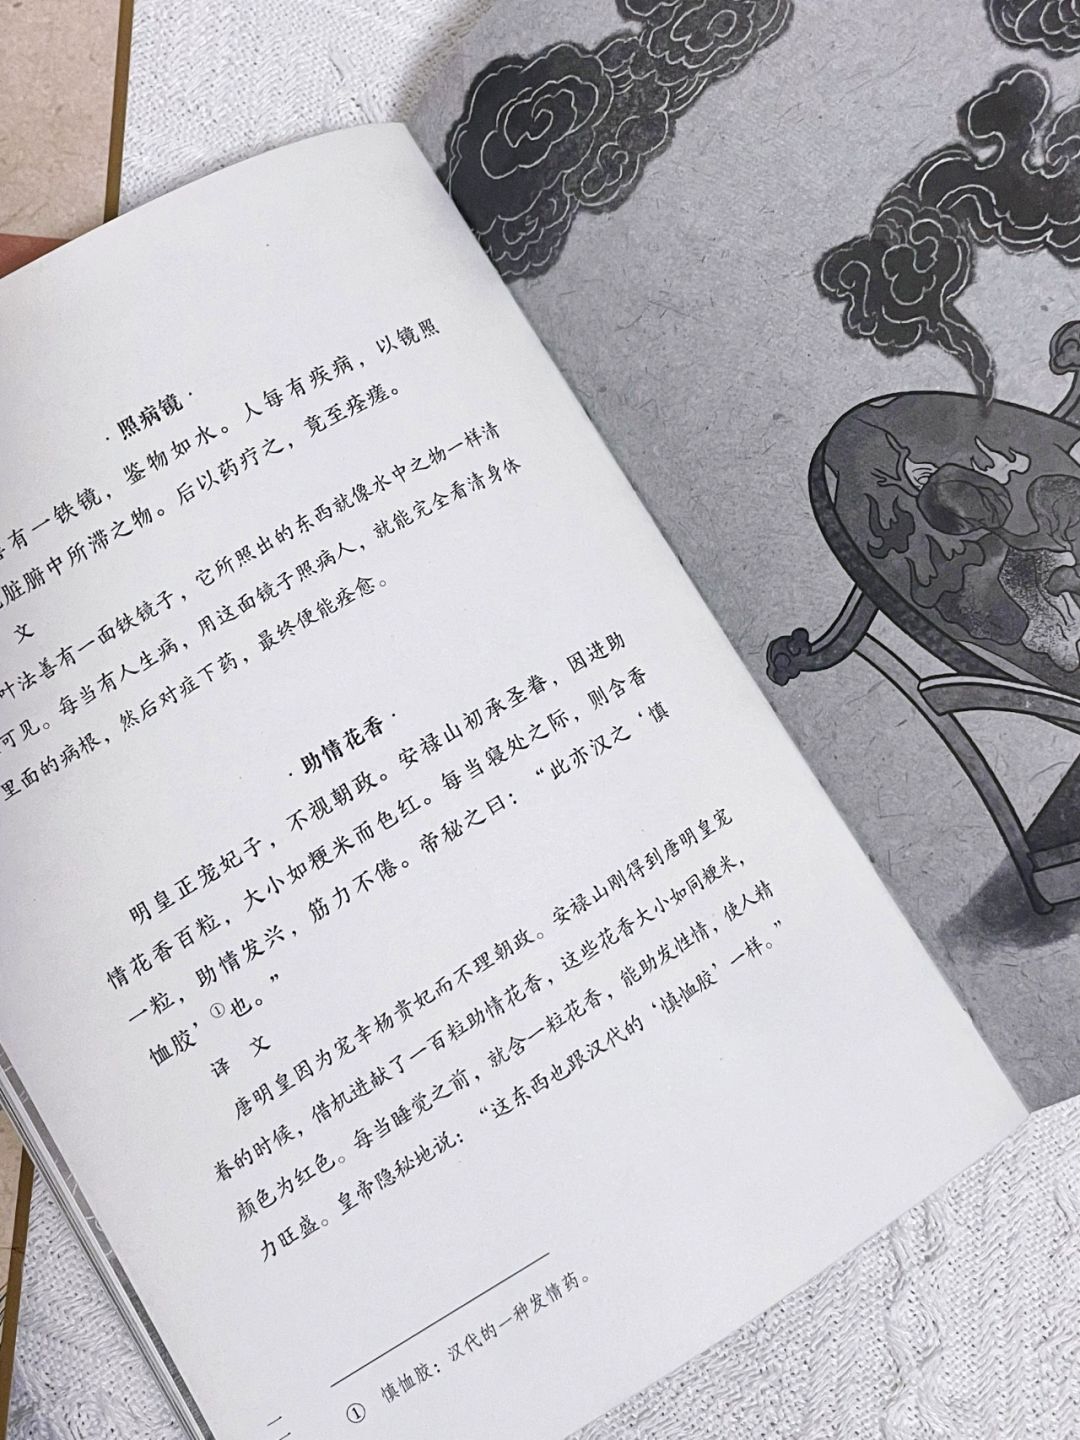 ·照病镜·
善有一铁镜，鉴物如水。人每有疾病，以镜照
脏腑中所滞之物。后以药疗之，竟至痊瘥。
文
叶法善有一面铁镜子，它所照出的东西就像水中之物一样清
可见。每当有人生病，用这面镜子照病人，就能完全看清身体
里面的病根，然后对症下药，最终便能痊愈。
·助情花香·
明皇正宠妃子，不视朝政。安禄山初承圣眷，因进助
情花香百粒，大小如粳米而色红。每当寝处之际，则含香
一粒，助情发兴，筋力不倦。帝秘之曰：“此亦汉之‘慎
恤胶’①也。”
译 文
唐明皇因为宠幸杨贵妃而不理朝政。安禄山刚得到唐明皇宠
眷的时候，借机进献了一百粒助情花香，这些花香大小如同粳米，
颜色为红色。每当睡觉之前，就含一粒花香，能助发性情，使人精
力旺盛。皇帝隐秘地说：“这东西也跟汉代的‘慎恤胶’一样。”
① 慎恤胶：汉代的一种发情药。